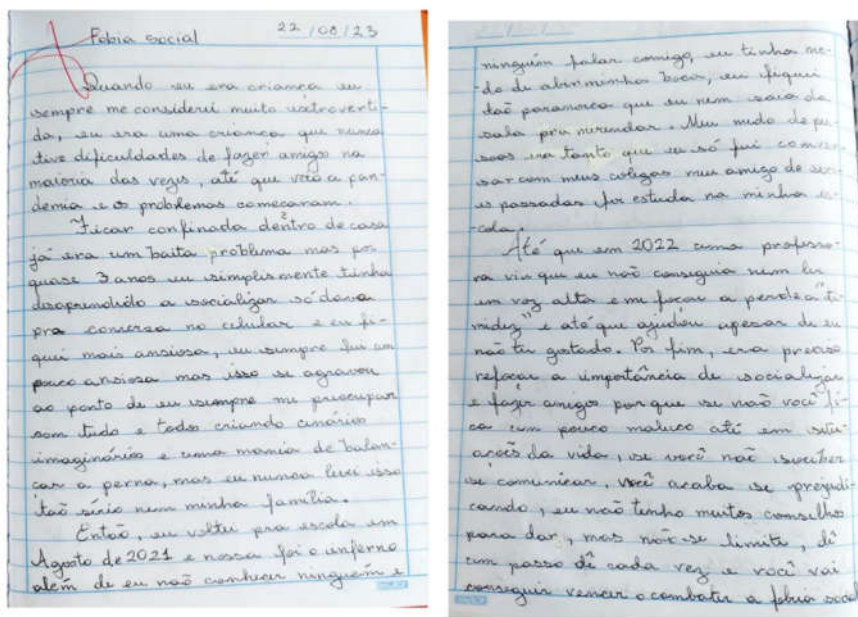 Fobia social 22/08/23
Quando eu era criança eu
sempre me considerei muito extroverti-
da, eu era uma criança que nunca
tive dificuldades de fazer amigo na
maioria das vezes, até que veio a pan-
demia e os problemas começaram.
Ficar confinada dentro de casa
já era um baita problema mas por
quase 3 anos eu simplismente tinha
desaprendido a socializar só dava
pra conversa no celular e eu fi-
quei mais ansiosa, eu sempre fui um
pouco ansiosa mas isso se agravou
ao ponto de eu sempre me preocupar
com tudo e todos criando cenários
imaginários e uma mania de balan-
çar a perna, mas eu nunca levei isso
tão sério nem minha família.
Então, eu voltei pra escola em
Agosto de 2021 e nossa foi o inferno
além de eu não conhecer ninguém e
ninguém falar comigo, eu tinha me-
do de abrir minha boca, eu fiquei
tão paranoica que eu nem saia da
sala pra merendar. Meu medo de pes-
soas era tanto que eu só fui conver-
sar com meus colegas meu amigo de seri-
es passadas foi estuda na minha es-
cola.
Até que em 2022 uma professo-
ra viu que eu não conseguia nem ler
em voz alta e me focar a perde a "ti-
midez" e até que ajudou apesar de eu
não ter gostado. Por fim, era preciso
refoçar a importância de socializar
e fazer amigos porque se não você fi-
ca um pouco maluco até em situ-
ações da vida, se você não souber
se comunicar, você acaba se prejudi-
cando, eu não tenho muitos conselhos
para dar, mas não se limite, dê
um passo de cada vez e você vai
conseguir vencer o combater a fobia social